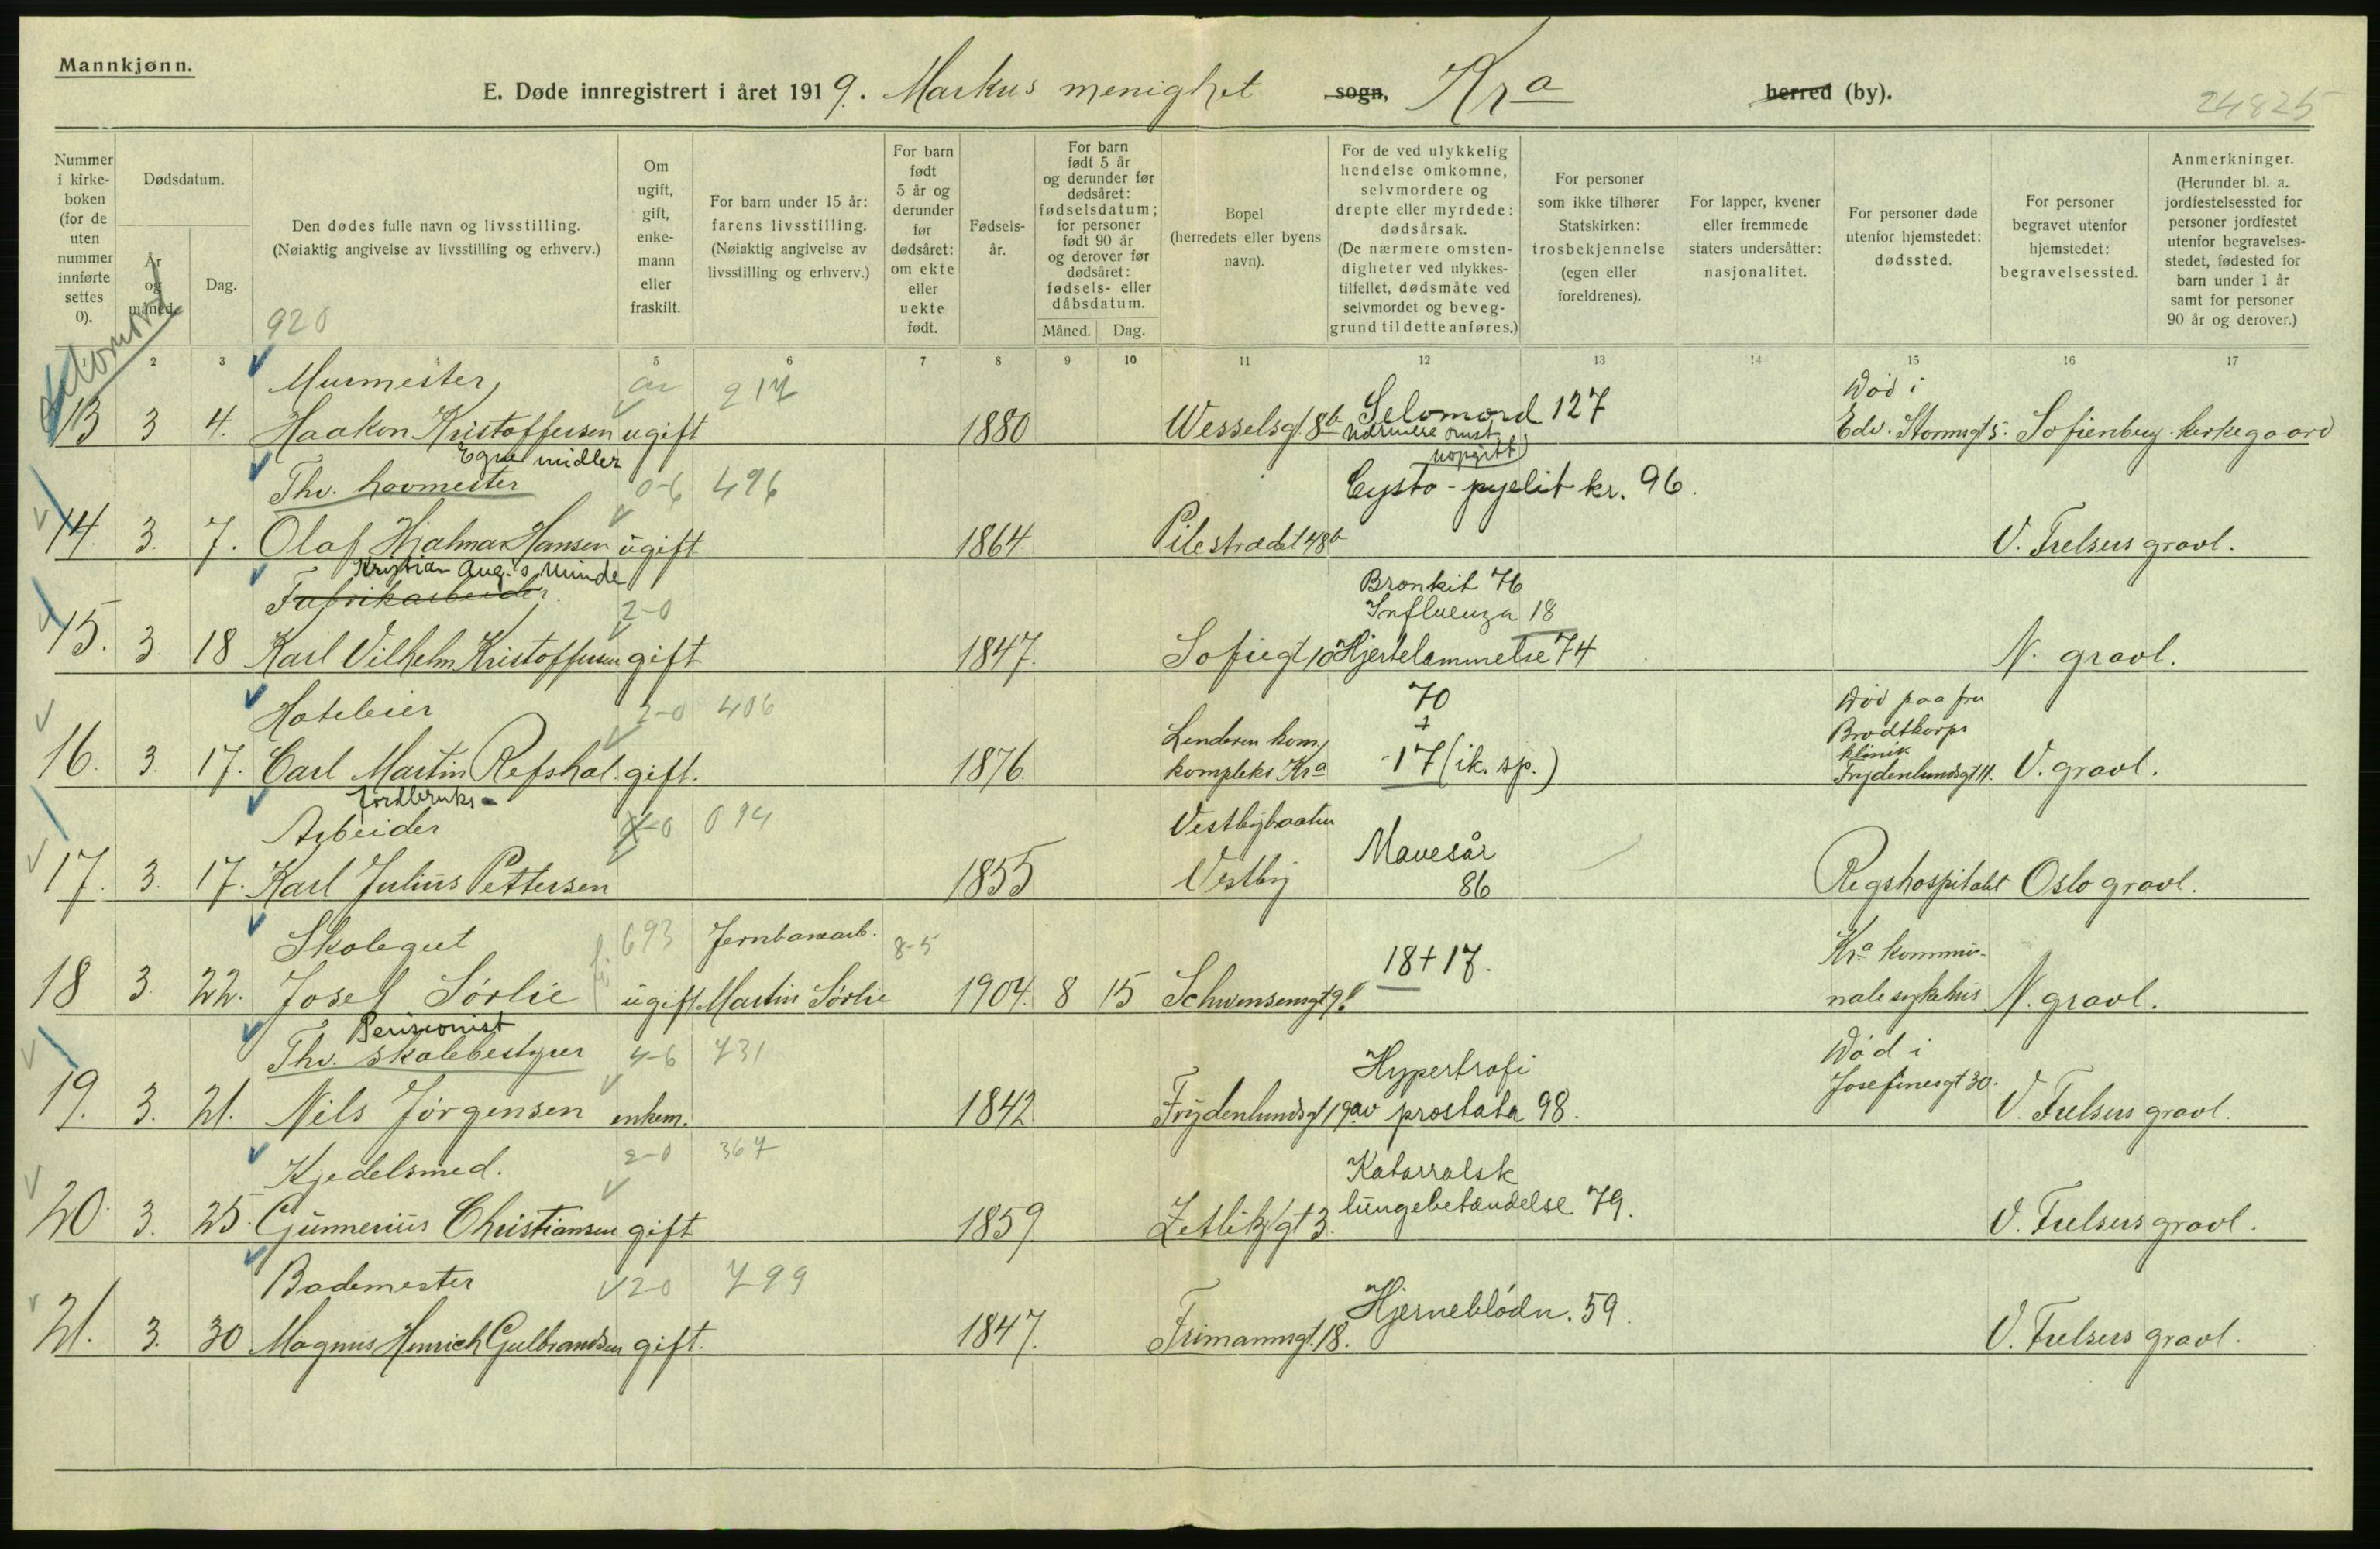 Mannkjønn.
E. Døde innregistrert i året 1919. Markus menighet sogn, Kra herred (by).
24825
Nummer i kirkeboken (for de uten nummer innførte settes 0).
Dødsdatum.
År og måned.
Dag.
Den dødes fulle navn og livsstilling. (Nøiaktig angivelse av livsstilling og erhverv.)
Om ugift, gift, enkemann eller fraskilt.
For barn under 15 år: farens livsstilling. (Nøiaktig angivelse av livsstilling og erhverv.)
For barn født 5 år og derunder før dødsåret: om ekte eller uekte født.
Fødselsår.
For barn født 5 år og derunder før dødsåret: fødselsdatum; for personer født 90 år og derover før dødsåret: fødsels- eller dåbsdatum.
Måned. Dag.
Bopel (herredets eller byens navn).
For de ved ulykkelig hendelse omkomne, selvmordere og drepte eller myrdede: dødsårsak. (De nærmere omstendigheter ved ulykkestilfellet, dødsmåte ved selvmordet og beveggrund til dette anføres.)
For personer som ikke tilhører Statskirken: trosbekjennelse (egen eller foreldrenes).
For lapper, kvener eller fremmede staters undersåtter: nasjonalitet.
For personer døde utenfor hjemstedet: dødssted.
For personer begravet utenfor hjemstedet: begravelsessted.
Anmerkninger. (Herunder bl. a. jordfestelsessted for personer jordfestet utenfor begravelsesstedet, fødested for barn under 1 år samt for personer 90 år og derover.)
920
Selvmord
2 3 4 5 6 7 8 9 10 11 12 13 14 15 16 17
Murmester 217 Selvmord 127 Død i
13 3 4. Haakon Kristoffersen ugift 1880 Wesselsgt. 8b Nærmere omst. uopgitt Edv. Stormsgt 5. Sofienberg kirkegaard
Egne midler
Thv. hovmester 0-6 496 Cysto-pyelit kr. 96.
14. 3. 7. Olaf Hjalmar Hansen ugift 1864 Pilestrædet 48b V. Frelsers gravl.
Kristian Aug.'s Minde
Fabrikarbeider 2-0 Bronkit 76
Influenza 18
15. 3. 18 Karl Vilhelm Kristoffersen gift 1847. Sofiegt 10 Hjertelammelse 74 N. gravl.
Hoteleier 2-0 406 70 Død paa fru
+
16. 3. 17. Carl Martin Refshal. gift. 1876. Lenderen kom. kompleks Kra 17 (ik. sp.) Brodtkorps klinik Frydenlundsgt 11. V. gravl.
Jordbruks-
Arbeider 094 Vestby
17. 3. 17. Karl Julius Pettersen 1855 Vestby Mavesår 86 Regshospitalet Oslo gravl.
Skolegut 693 Jernbanearb. 8-5 Kra kommu-
18 3. 22. Josef Sørlie ugift Martin Sørlie 1904. 8 15 Schwensensgt 9 18+17. nale sykehus N. gravl.
Pensionist
Thv. skolebestyrer 4-6 731 Hypertrofi Død i
19. 3. 21. Nils Jørgensen enkem. 1842. Frydenlundsgt 19 av prostata 98. Josefinesgt 30. V. Frelsers gravl.
Kjedelsmed. 2-0 367 Katarralsk
20. 3. 25. Gunnerius Christiansen gift 1859 Zetlitzgt 3. lungebetændelse 79. V. Frelsers gravl.
Bademester 20 799
21. 3. 30 Magnus Henrich Gulbrandsen gift. 1847. Frimannsgt. 18. Hjerneblødn. 59. V. Frelsers gravl.